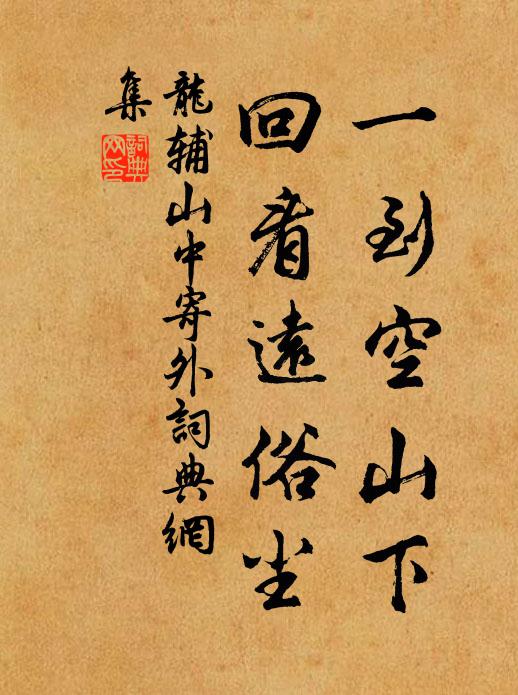 一到空山下
回看遠俗尘
龍辅山中寄外詞典網
集
詞典
网印